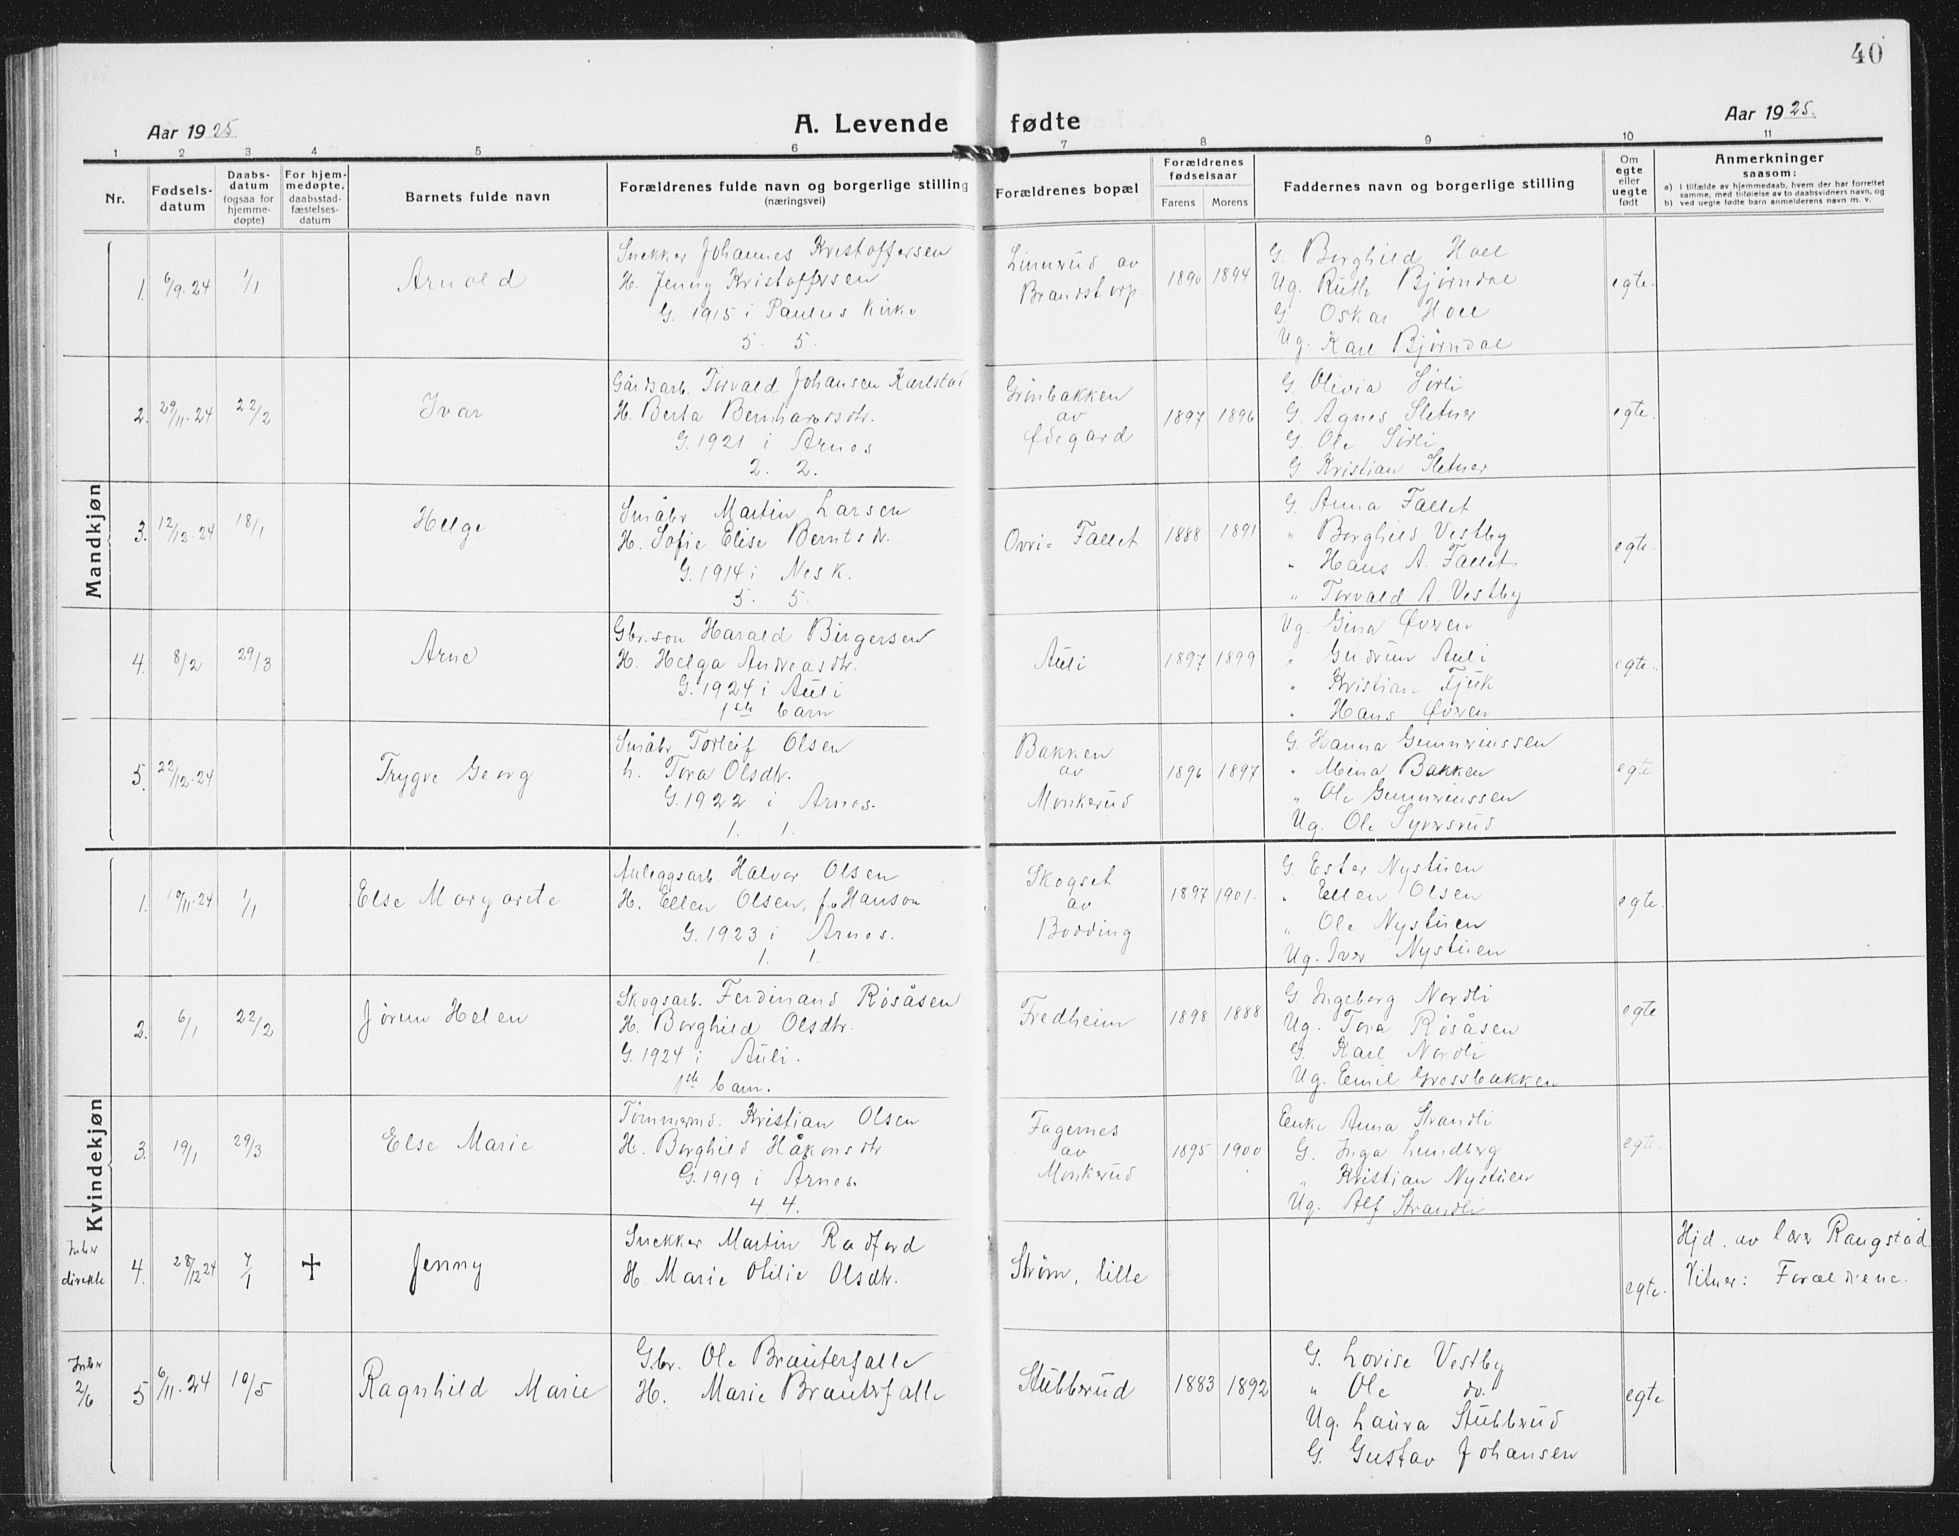 40
Aar 1925.
A. Levende fødte
Aar 1925.
1 2 3 4 5 6 7 8 9 10 11
Nr.
Fødsels-
datum
Daabs-
datum
(ogsaa for
hjemme-
døpte)
For hjem-
medøpte,
daabsstad-
fæstelses-
datum
Barnets fulde navn
Forældrenes fulde navn og borgerlige stilling
(næringsvei)
Forældrenes bopæl
Forældrenes
fødselsaar
Farens Morens
Faddernes navn og borgerlige stilling
Om
egte
eller
uegte
født
Anmerkninger
saasom:
a) I tilfælde av hjemmedaab, hvem der har forrettet
samme, med tilføielse av to daabsvidners navn, og
b) ved uegte fødte barn anmelderens navn m. v.
Mandkjøn
1. 6/9.24 1/1 Arnold
Snekker Johannes Kristoffersen
H. Jenny Kristoffersen
G. 1915 i Paulus Kirke
5. 5.
Linnerud av
Brandstorp.
1890 1894
G. Borghild Hoel
Ug. Ruth Bjørndal
G. Oskar Hoel
Ug. Karl Bjørndal
egte.
2. 29/11.24 22/2 Ivar
Gårdsarb. Torvald Johansen Karlstad
H. Berta Bernhardsdtr.
G. 1921 i Arnes
2. 2.
Grønbakken
av
Ødegard
1897 1896
G. Olivia Sørli
G. Agnes Sletner
G. Ole Sørli
G Kristian Sletner
egte.
3. 12/12.24 18/1 Helge
Småbr Martin Larsen
H. Sofie Elise Berntsdr.
G. 1914 i Nesk.
5. 5.
Ovri= Fallet
1888 1891
G. Anna Fallet
" Borghild Vestby
" Hans A. Fallet
" Torvald A. Vestby
egte.
4. 8/2 29/3 Arne
Gbr.son Harald Birgersen
H. Helga Andreasdtr.
G. 1924 i Auli
1ste barn
Auli
1897 1899
Ug. Gina Øvren
" Gudrun Auli
" Kristian Fjuk
" Hans Øvren
egte.
5. 22/12.24 Trygve Georg
Småbr Torleif Olsen
h. Tora Olsdtr.
G. 1922 i Arnes.
1. 1.
Bakken
av
Monkerud
1896 1897
G. Hanna Gunnerussen
" Mina Bakken
" Ole Gunnerussen
Ug. Ole Syversrud
egte
Kvindekjøn
1. 10/11.24 1/1 Else Margarete
Anleggsarb. Halvor Olsen
H. Ellen Olsen, f. Hanson
G. 1923 i Arnes.
1. 1.
Skogset
av
Bodding
1897 1901.
G Ester Nystuen
" Ellen Olsen
" Ole Nystuen
Ug. Iver Nystuen
egte.
2. 6/1 22/2 Jørun Helen
Skogsarb. Ferdinand Røsåsen
H. Borghild Olsdtr.
G. 1924 i Auli.
1ste barn.
Fredheim
1898 1888
G Ingeborg Nordli
Ug. Tora Røsåsen
G. Karl Nordli
Ug. Emil Grossbakken
egte
3. 19/1 29/3 Else Marie
Tømmermd. Kristian Olsen
H. Borghild Håkonsdtr
G. 1919 i Arnes.
4 4.
Fagernes
av
Monkerud
1895 1900
Enke Anna Strandli
G. Inga Lundberg
" Kristian Nystuen
Ug. Alf Strandli
egte.
Inber
direkte
4. 28/12 24 7/1 + Jenny
Snekker Martin Radford
H. Marie Otilie Olsdtr.
Strøm, lille
egte.
Hjd. av lærer Rangstad
Vitner: Forældrene.
Inber
2/6
5 6/11.24 10/5 Ragnhild Marie
Gbr. Ole Brauterfalle
H. Marie Brauterfalle
Stubbrud
1883 1892
G. Lovise Vestby
" Ole do.
Ug. Laura Stubbrud
G. Gustav Johansen
egte